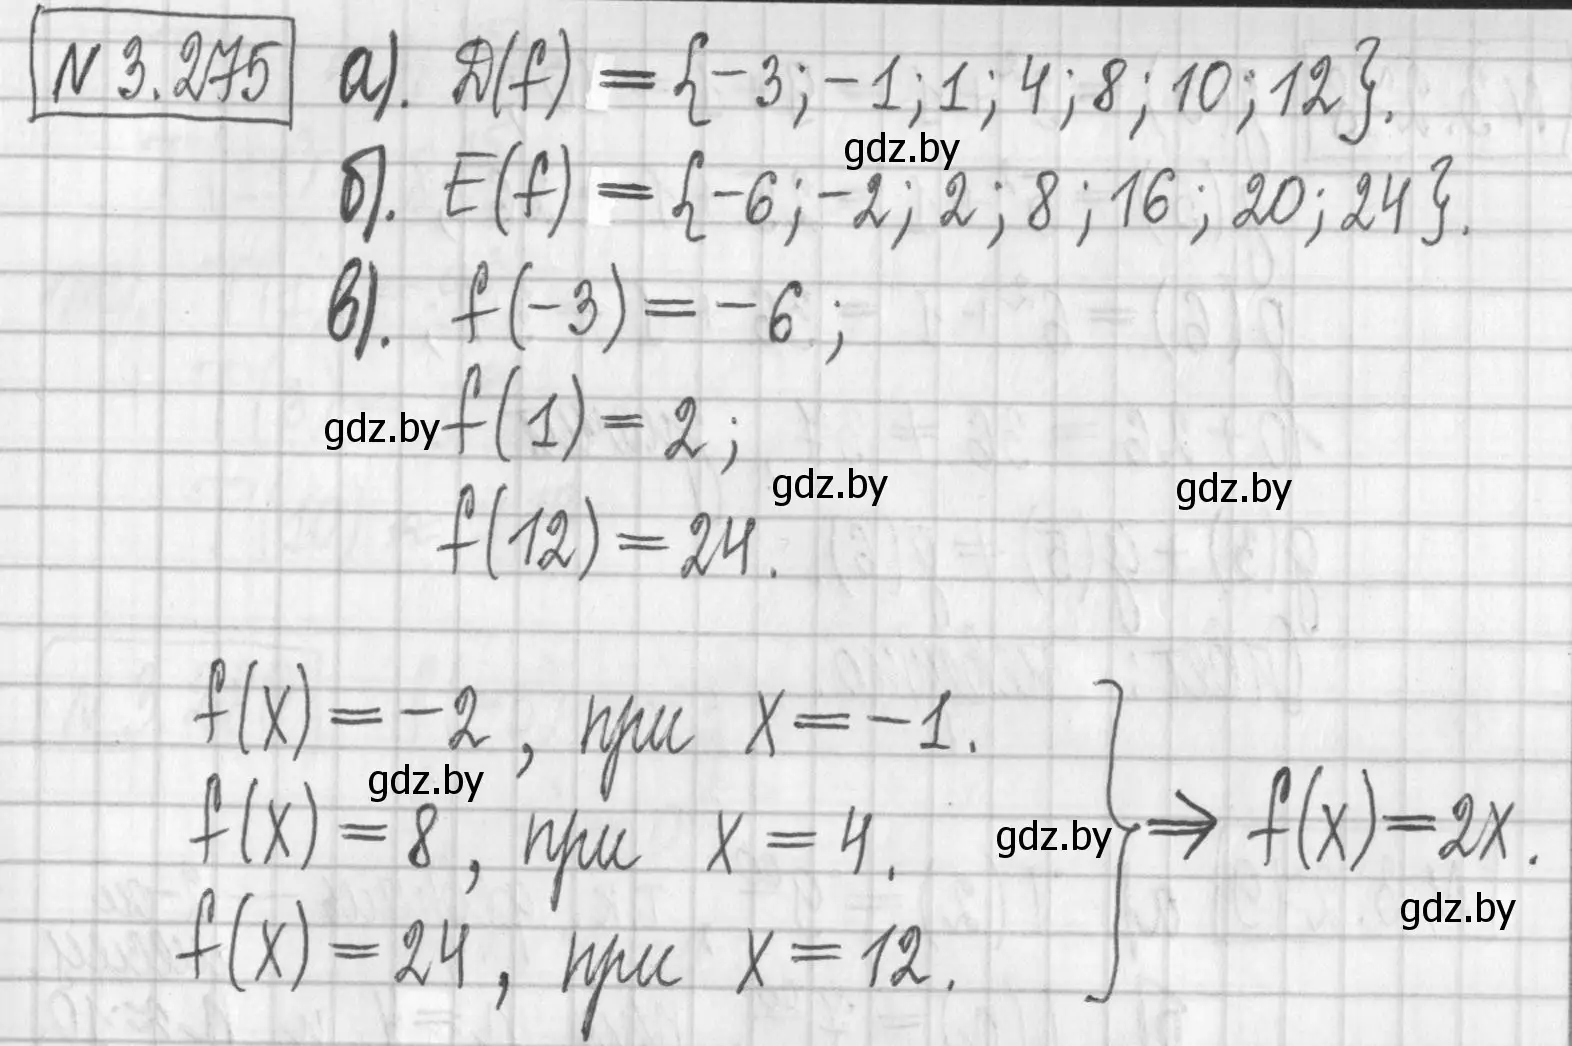 N 3.275 а). D(f) = {-3; -1; 1; 4; 8; 10; 12}.
gdz.by
б). E(f) = {-6; -2; 2; 8; 16; 20; 24}.
в). f(-3) = -6;
gdz.by f(1) = 2;
gdz.by gdz.by
f(12) = 24.
f(x) = -2, при x = -1.
gdz.by
f(x) = 8, при x = 4. gdz.by ⇒ f(x) = 2x.
gdz.by
f(x) = 24, при x = 12.